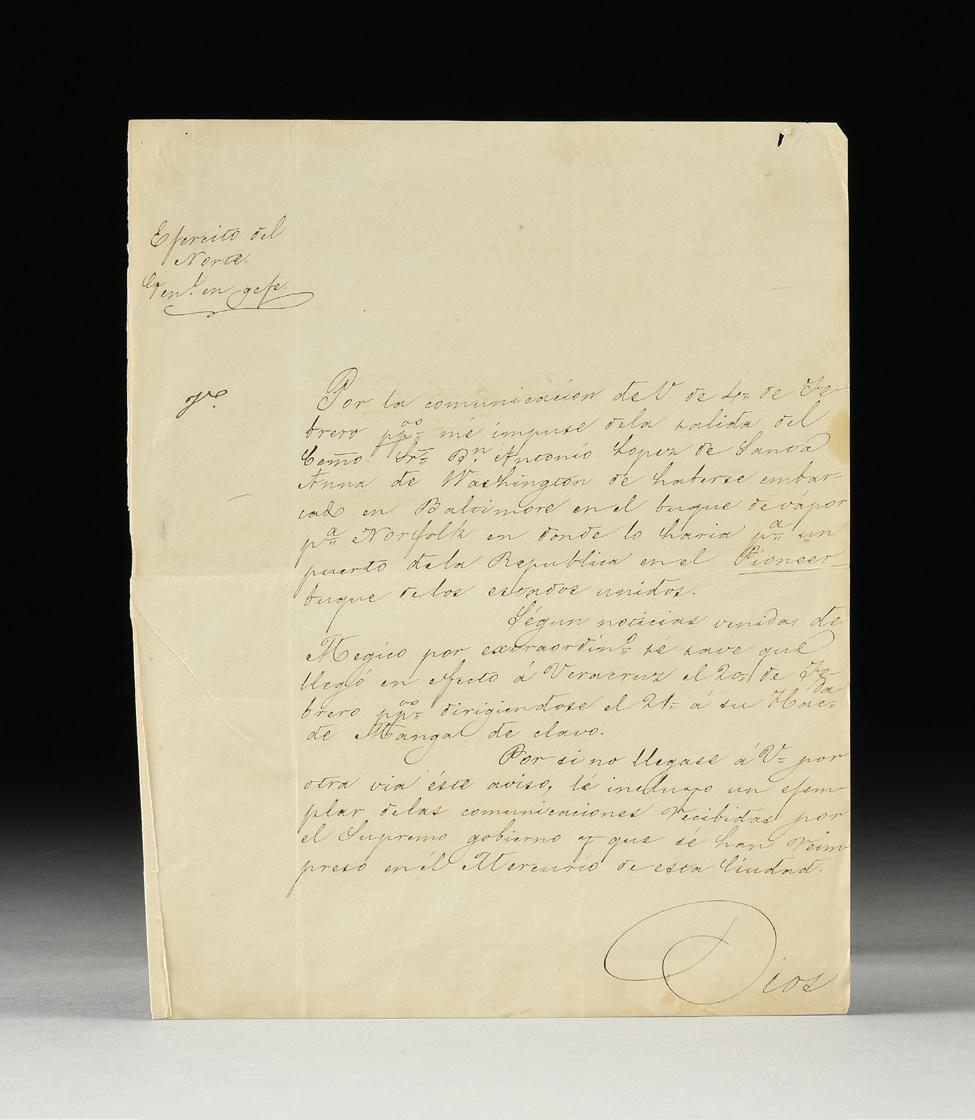 Ejercito del
Norte.
Gen.l en gefe.
Por la comunicacion de V. de 4, de Fe-
brero pp.do me impuse dela salida del
Ecmo. Sr. Dn. Antonio Lopez de Santa
Anna de Washington de haberse embar-
cado en Baltimore en el buque de vápor
p.a Norfolk en donde lo haria p.a un
puerto dela Republica en el Pioneer
buque delos estados unidos.
Ségun noticias venidas de
Megico por extraordin.o sé save que
llegó en efecto á Veracruz el 20, de Fe-
brero pp.do dirigiendose el 21, á su Hac.da
de Mangal de clavo.
Por si no llegase á V. por
otra via éste aviso, lé incluyo un ejem-
plar delas comunicaciones recibidas por
el Supremo gobierno y que sé han reim
preso en él Mercurio de esta Ciudad.
Dios